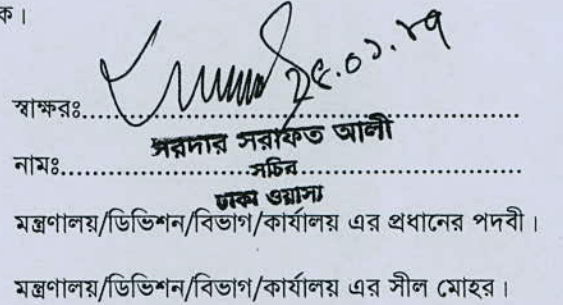 ক।
স্বাক্ষরঃ..............................
সরদার সরাফত আলী
নামঃ..............................
সচিব
ঢাকা ওয়াসা
মন্ত্রণালয়/ডিভিশন/বিভাগ/কার্যালয় এর প্রধানের পদবী।
মন্ত্রণালয়/ডিভিশন/বিভাগ/কার্যালয় এর সীল মোহর।